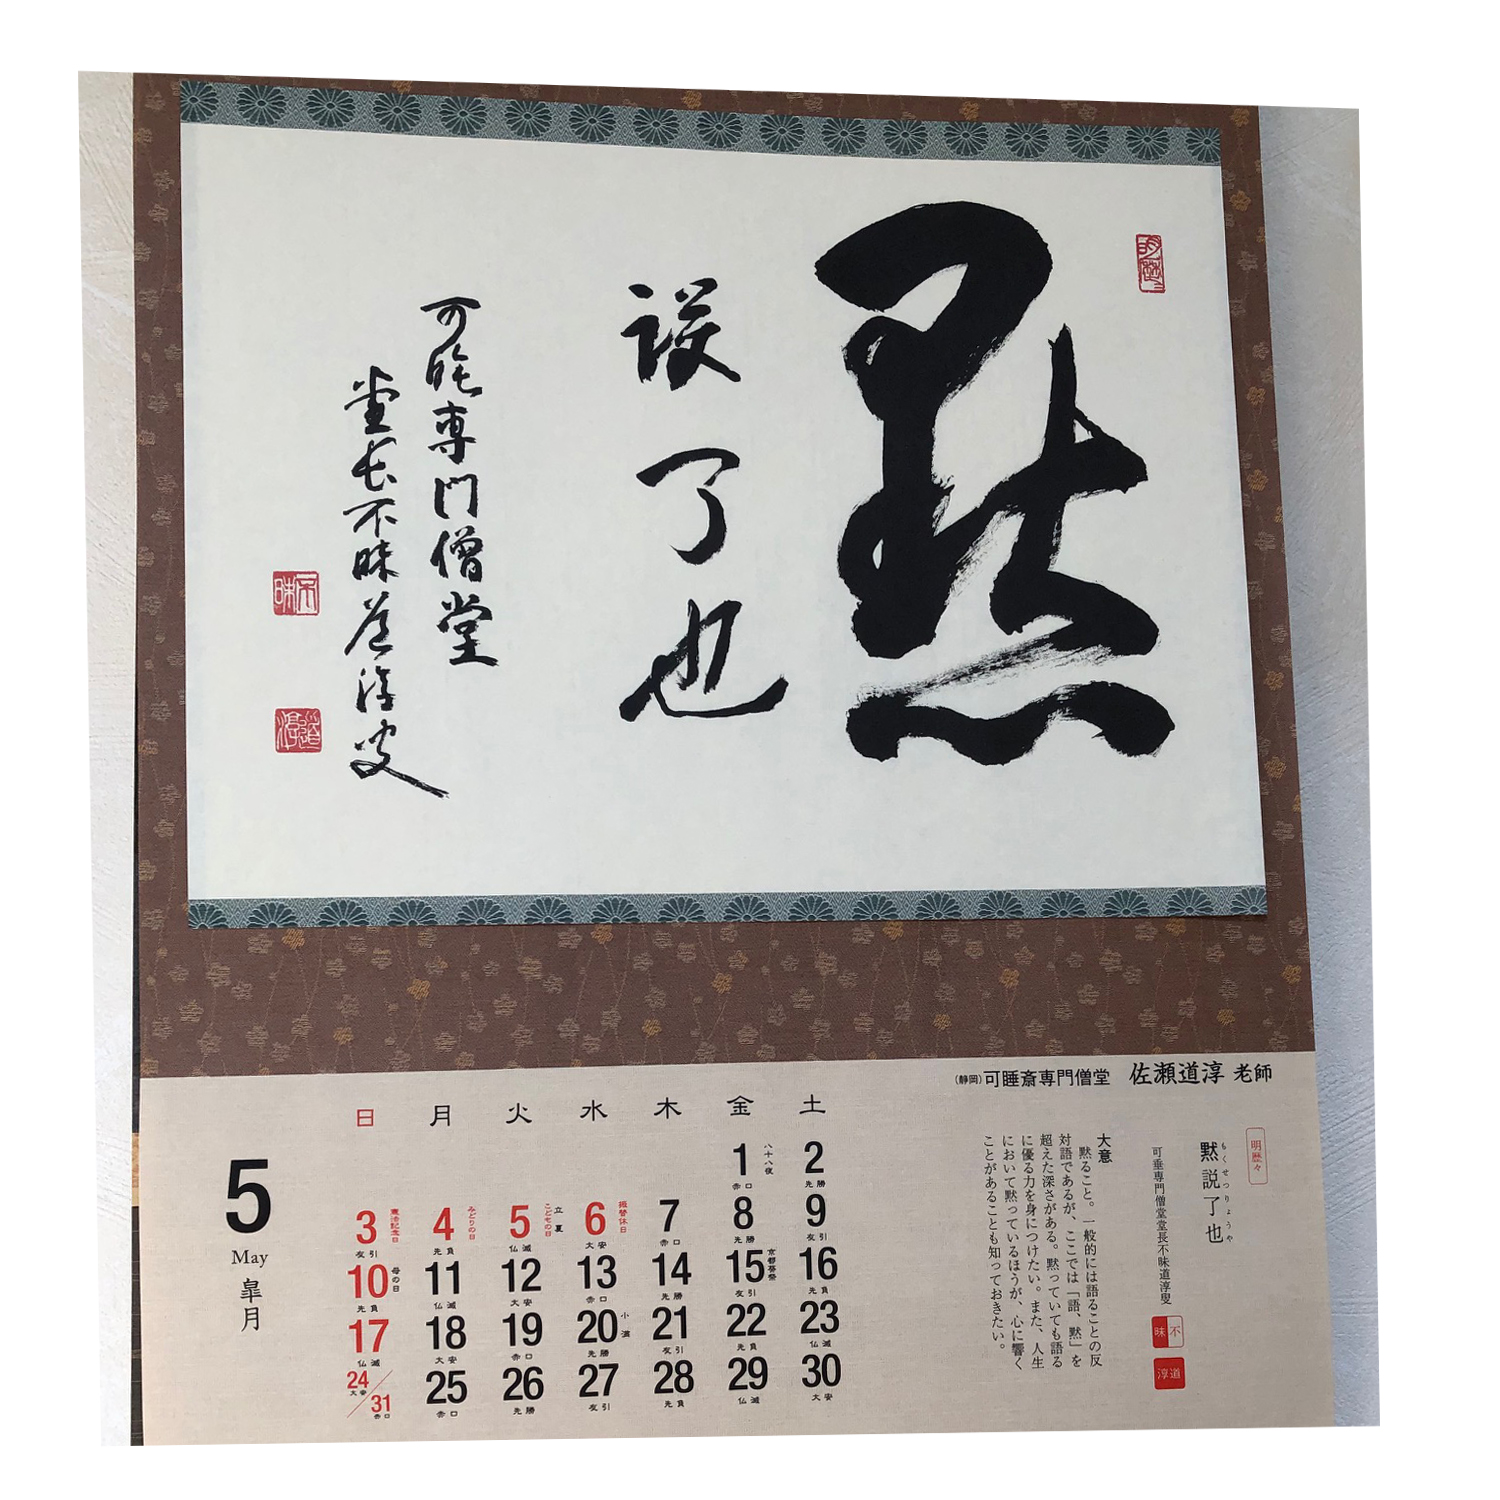 明歴々
黙
説了也
可睡専門僧堂
堂長不昧道淳叟
不昧
道淳
(静岡)可睡斎専門僧堂 佐瀬道淳 老師
明歴々
もくせつりょうや
黙説了也
可垂専門僧堂堂長不昧道淳叟
不昧
道淳
大意
黙ること。一般的には語ることの反
対語であるが、ここでは「語、黙」を
超えた深さがある。黙っていても語る
に優る力を身につけたい。また、人生
において黙っているほうが、心に響く
ことがあることも知っておきたい。
5
May
皐月
日 月 火 水 木 金 土
1 八十八夜 2
赤口 先勝
3 憲法記念日 4 みどりの日 5 こどもの日 立夏 6 振替休日 7 8 9
友引 先負 仏滅 大安 赤口 先勝 友引
10 母の日 11 12 13 14 15 京都葵祭 16
先負 仏滅 大安 赤口 先勝 友引 先負
17 18 19 20 小満 21 22 23
仏滅 大安 赤口 先勝 友引 先負 仏滅
24/31 25 26 27 28 29 30
大安 赤口 赤口 先勝 友引 先負 仏滅 大安